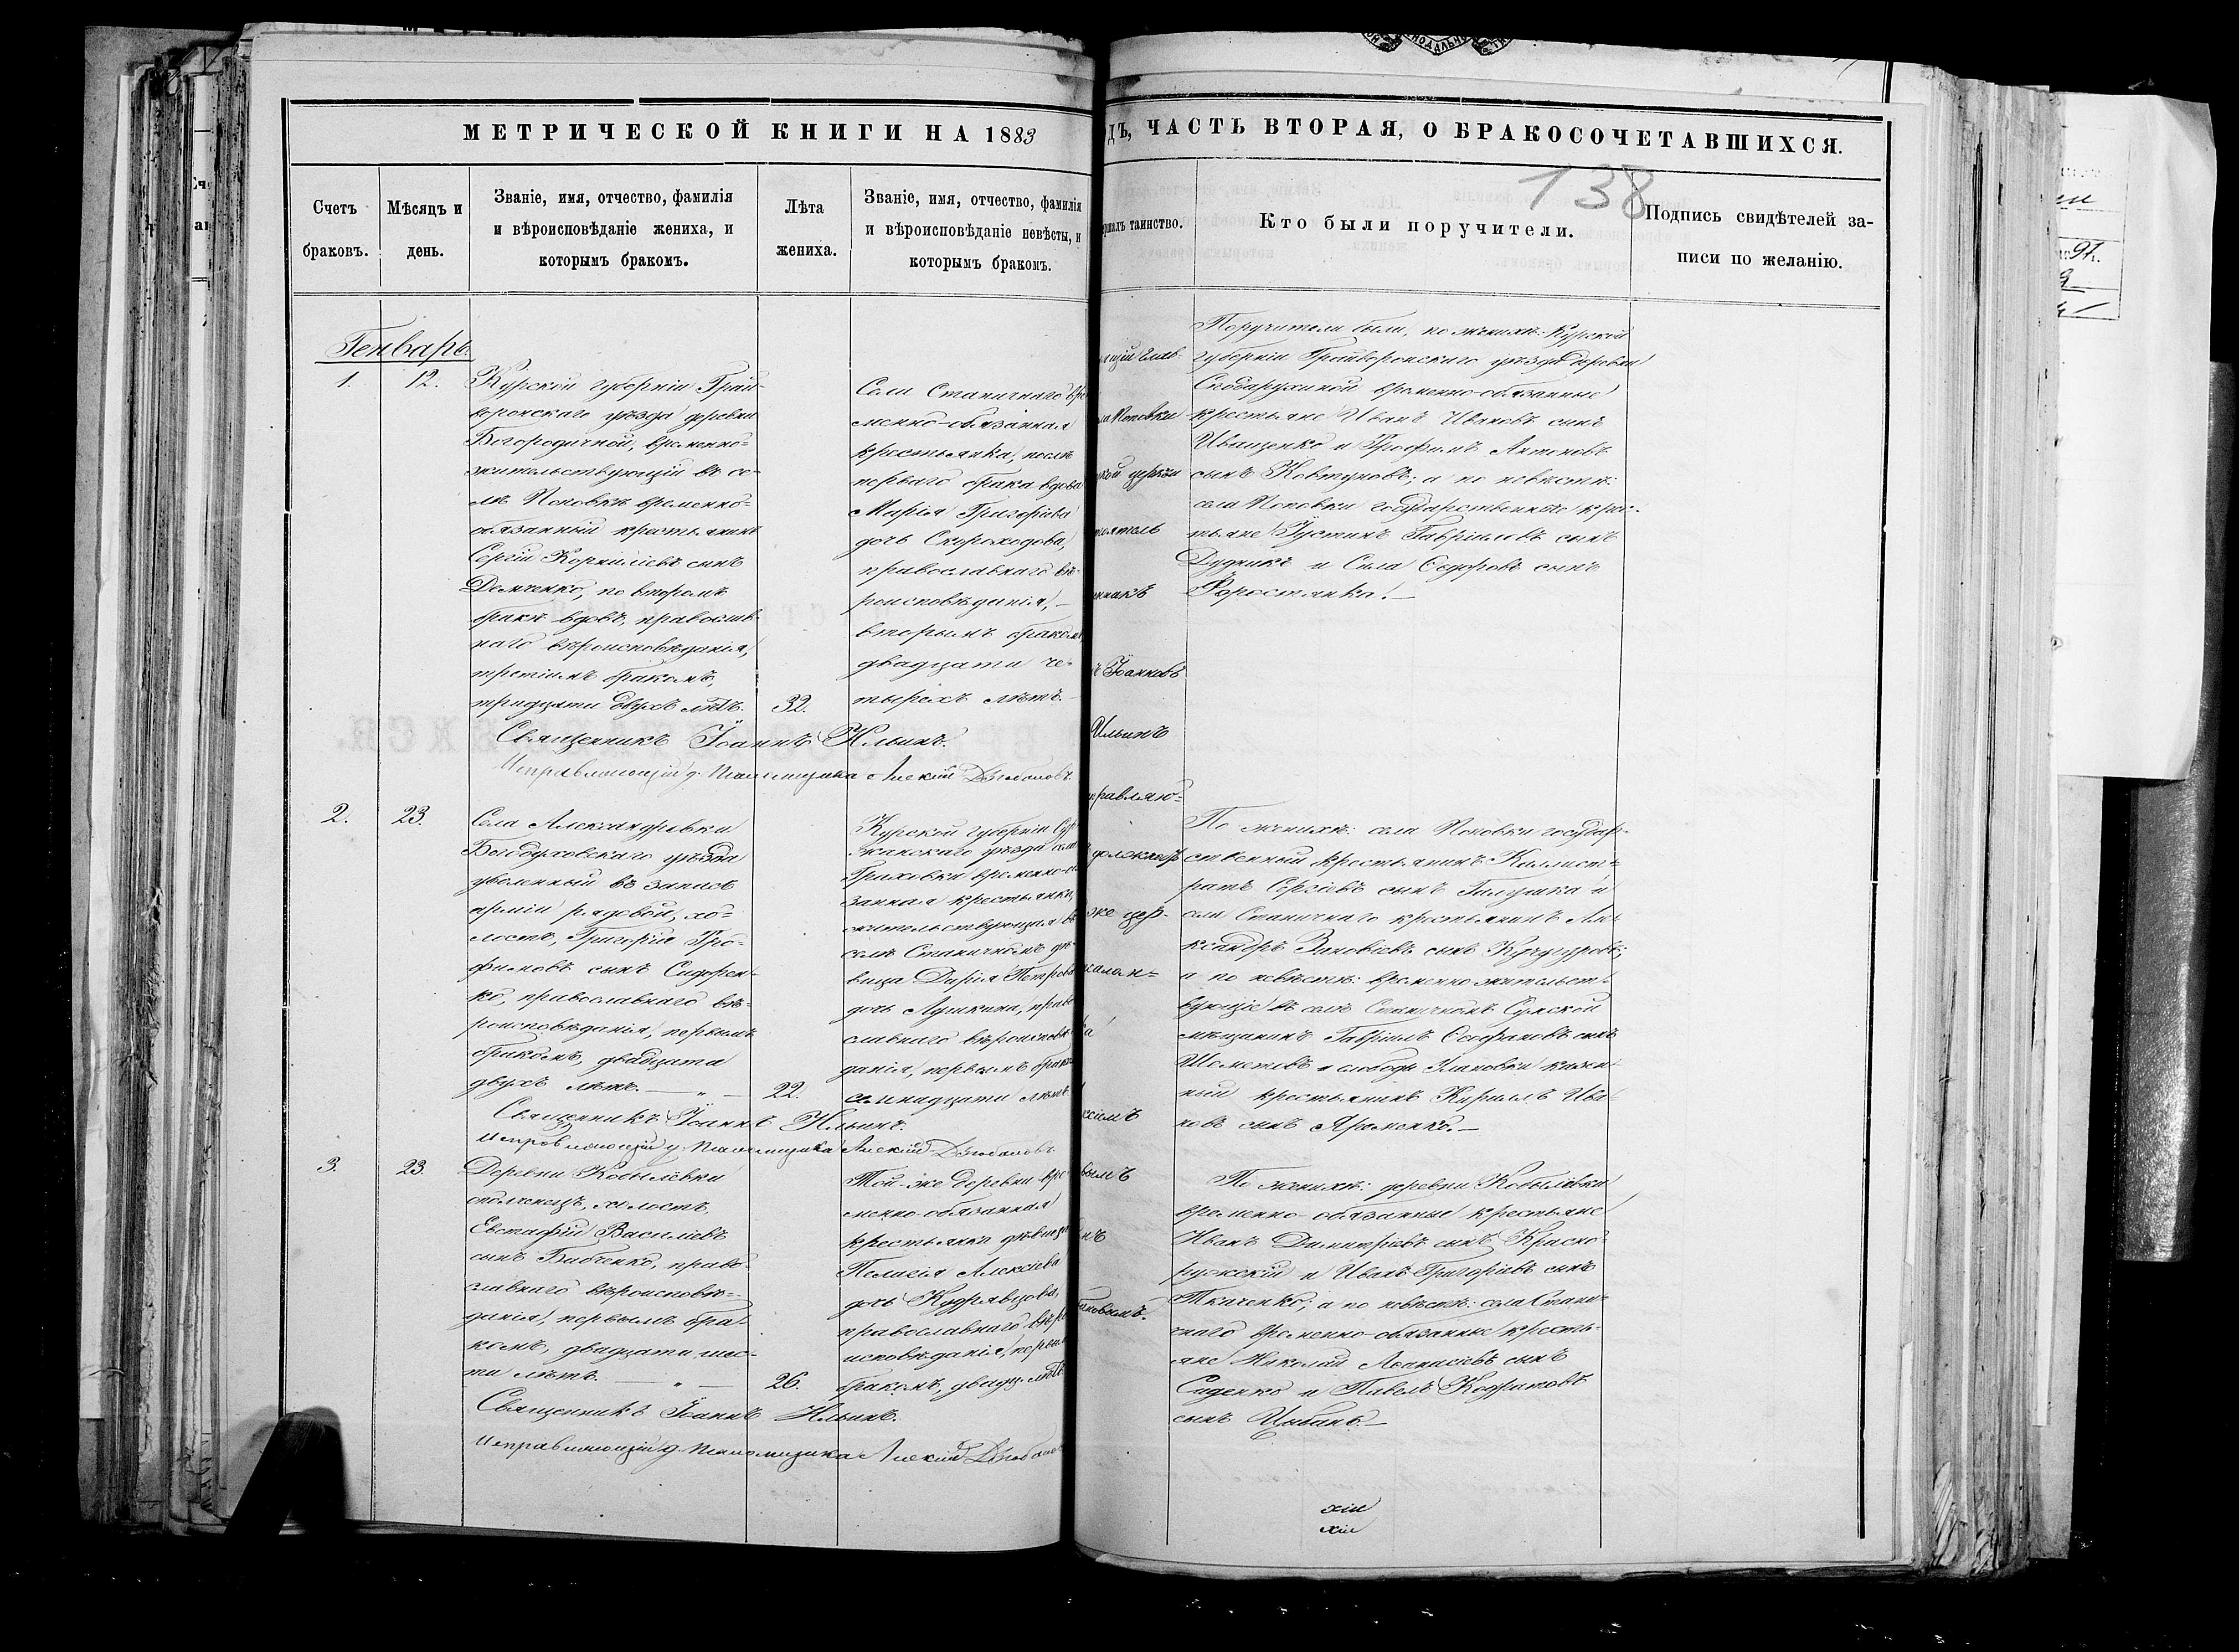 МЕТРИЧЕСКОЙ КНИГИ НА 1883
ДЪ, ЧАСТЬ ВТОРАЯ, О БРАКОСОЧЕТАВШИХСЯ.
138
Счетъ
браковъ.
Мѣсяцъ и
день.
Званіе, имя, отчество, фамилія
и вѣроисповѣданіе жениха, и
которымъ бракомъ.
Лѣта
жениха.
Званіе, имя, отчество, фамилія
и вѣроисповѣданіе невѣсты, и
которымъ бракомъ.
таинство.
Кто были поручители.
Подпись свидѣтелей за-
писи по желанію.
Генварь.
1.
12.
Курской губерніи Грай-
воронскаго уѣзда деревни
Богородичной, временно-
жительствующій въ се-
лѣ Поповкѣ временно-
обязанный крестьянинъ
Сергій Корниліевъ сынъ
Демченко, по второмъ
бракѣ вдовъ, православ-
наго вѣроисповѣданія,
третіимъ бракомъ,
тридцати двухъ лѣтъ.
32.
Села Станичнаго вре
менно-обязанная
крестьянка, послѣ
перваго брака вдова
Марія Григоріева
дочь Скороходова,
православнаго вѣ-
роисповѣданія,
вторымъ бракомъ,
двадцати че-
тырехъ лѣтъ.
Поповки
церкви
Іоанновъ
Ильинъ
Поручители были, по женихѣ: Курской
губерніи Грайворонскаго уѣзда деревни
временно-обязанные
крестьяне Иванъ Ивановъ сынъ
Иващенко и Трофимъ Антоновъ
сынъ Ковтуновъ; а по невѣстѣ:
села Поповки государственные крес-
тьяне Іустинъ Гавріиловъ сынъ
Дудникъ и Сила Ѳедоровъ сынъ
Форостянка.
Священникъ Іоаннъ Ильинъ.
Исправляющій д. Псаломщика Алексій
2.
23.
Села Александровки
Богодуховскаго уѣзда
уволенный въ запасъ
арміи рядовой, хо-
лостъ, Григорій Тро-
фимовъ сынъ Сидорен-
ко, православнаго вѣ-
роисповѣданія, первымъ
бракомъ, двадцати
двухъ лѣтъ. — „ —
22.
Курской губерніи Суд
жанскаго уѣзда
временно-о
занная крестьянка,
жительствующая въ
селѣ Станичномъ дѣ-
вица Дарія Петрова
дочь Лушкина, право
славнаго вѣроисповѣ
данія, первымъ брако
семнадцати лѣтъ.
же цер-
По женихѣ: села Поповки государ-
ственный крестьянинъ Каллист-
ратъ Сергіевъ сынъ Галушка и
села Станичнаго крестьянинъ Але-
ксандръ Зиновіевъ сынъ Кучугуровъ;
а по невѣстѣ: временно жительст-
вующіе въ селѣ Станичномъ Сумской
мѣщанинъ Гавріилъ сынъ
и слободы Улановки казен-
ный крестьянинъ Кириллъ Ива-
новъ сынъ Яременко.
Священникъ Іоаннъ Ильинъ.
Исправляющій д. Псаломщика Алексій
3.
23.
Деревни Кобылевки
ополченецъ, холостъ,
Евстафій Василіевъ
сынъ Бабченко, право-
славнаго вѣроисповѣ-
данія, первымъ бра-
комъ, двадцати шес-
ти лѣтъ. — „ —
26.
Той-же деревни вре
менно-обязанная
крестьянка дѣвица
Пелагія Алексіева
дочь Кудрявцова,
православнаго вѣро
исповѣданія, первы
бракомъ, двадц. лѣтъ
По женихѣ: деревни Кобылевки
временно-обязанные крестьяне
Иванъ Димитріевъ сынъ Красно-
ружскій и Иванъ Григоріевъ сынъ
Ткаченко; а по невѣстѣ: села Стани-
чнаго временно-обязанные кресть-
яне Николай Аѳанасіевъ сынъ
Сиденко и Павелъ Кодратовъ
сынъ Цыбань.
Священникъ Іоаннъ Ильинъ.
Исправляющій д. Псаломщика Алексій